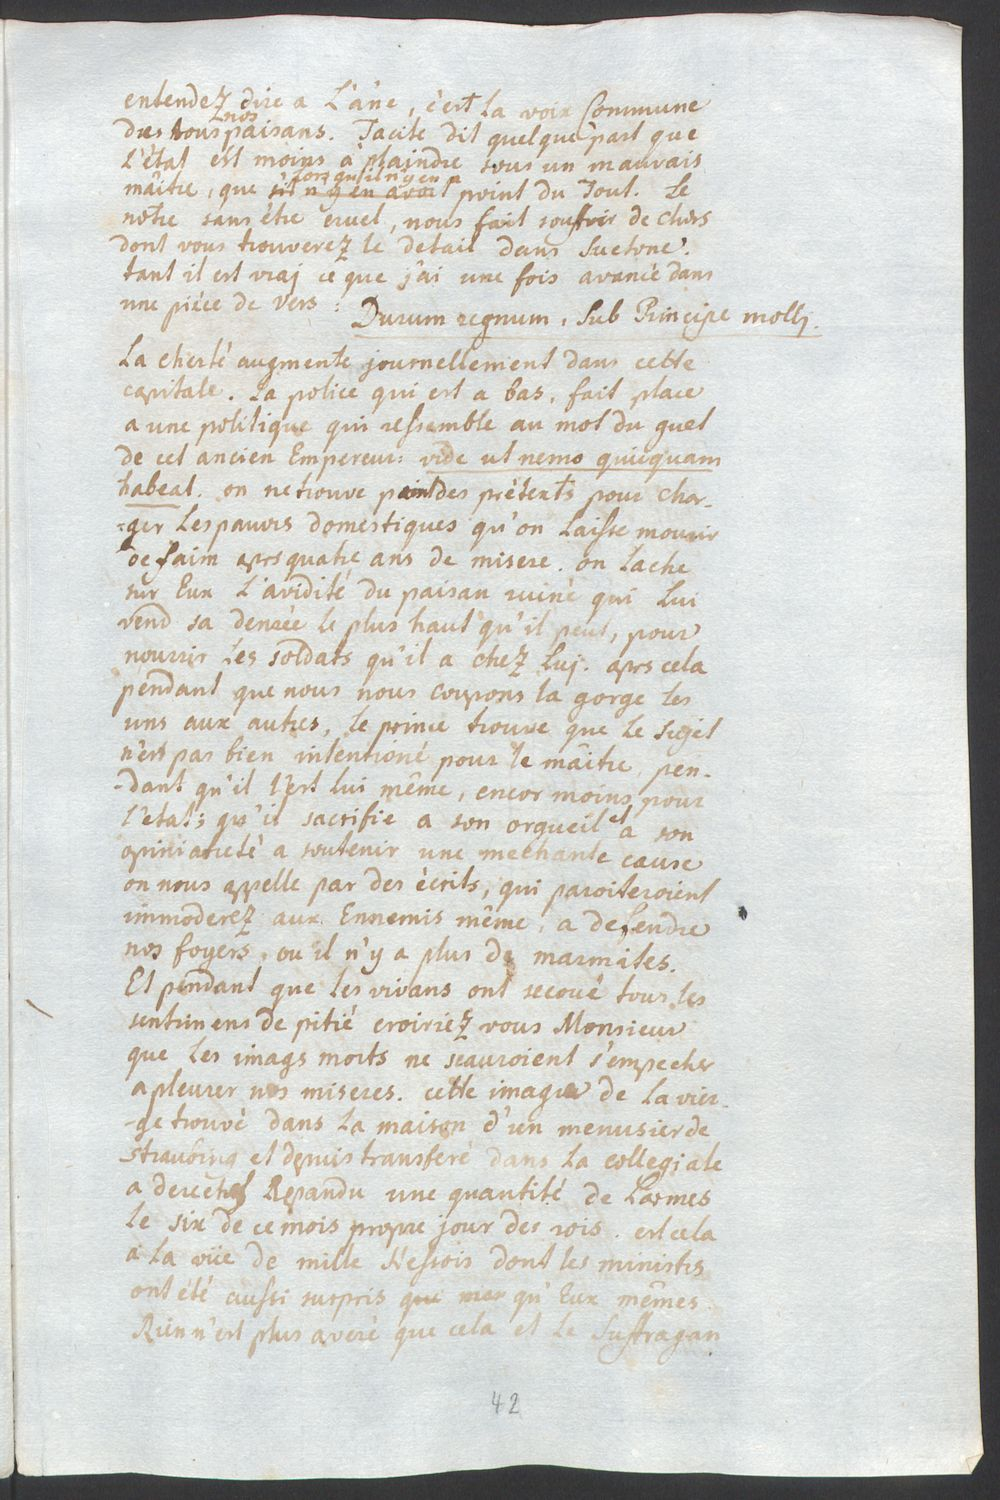 entendez dire a L'âne, c'est la voix Commune
des tous nos paisans. Tacite dit quelque part que
L'état est moins à plaindre sous un mauvais
maître, que s'il n'y en avoit lorsqu'il n'y en a point du Tout. Le
nôtre sans être cruel, nous fait soufrir de choses
dont vous trouverez le detail dans Suetone.
tant il est vraj ce que j'ai une fois avancé dans
une piéce de vers :
Durum regnum, sub Principe mollj.
La cherté augmente journellement dans cette
capitale. La police qui est a bas, fait place
a une politique qui ressemble au mot du guet
de cet ancien Empereur: vide ut nemo quicquam
habeat. on ne trouve point des prétexts pour char-
=ger Les pauvrs domestiques qu'on Laisse mourir
de faim aprs quatre ans de misere. on Lache
sur Eux L'avidité du paisan ruiné qui Lui
vend sa denrée le plus haut qu'il peut, pour
nourrir Les soldats qu'il a chez Luj. aprs cela
pendant que nous nous coupons la gorge les
uns aux autres, le prince trouve que Le sujet
n'est pas bien intentioné pour le maître, pen-
-dant qu'il l'est lui même, encor moins pour
l'etat; qu'il sacrifie a son orgueil et a son
opiniatreté a soutenir une mechante cause
on nous appelle par des écrits, qui paroiteroient
immoderez aux Ennemis même, a defendre
nos foyers, ou il n'y a plus de marmites.
Et pendant que les vivans ont secoué tous les
sentimens de pitié croiriez vous Monsieur
que les imags morts ne scauroient s'empecher
a pleurer nos miseres. cette image de La vier-
-ge trouvé dans la maison d'un menusier de
straubing et depuis transferé dans la collegiale
a derechef Repandu une quantité de Larmes
le six de ce mois propre jour des rois. est cela
a la vüe de mille Hessois dont les ministrs
ont été aussi surpris que mer qu'Eux mêmes.
Rien n'est plus averé que cela et Le Suffragan
42